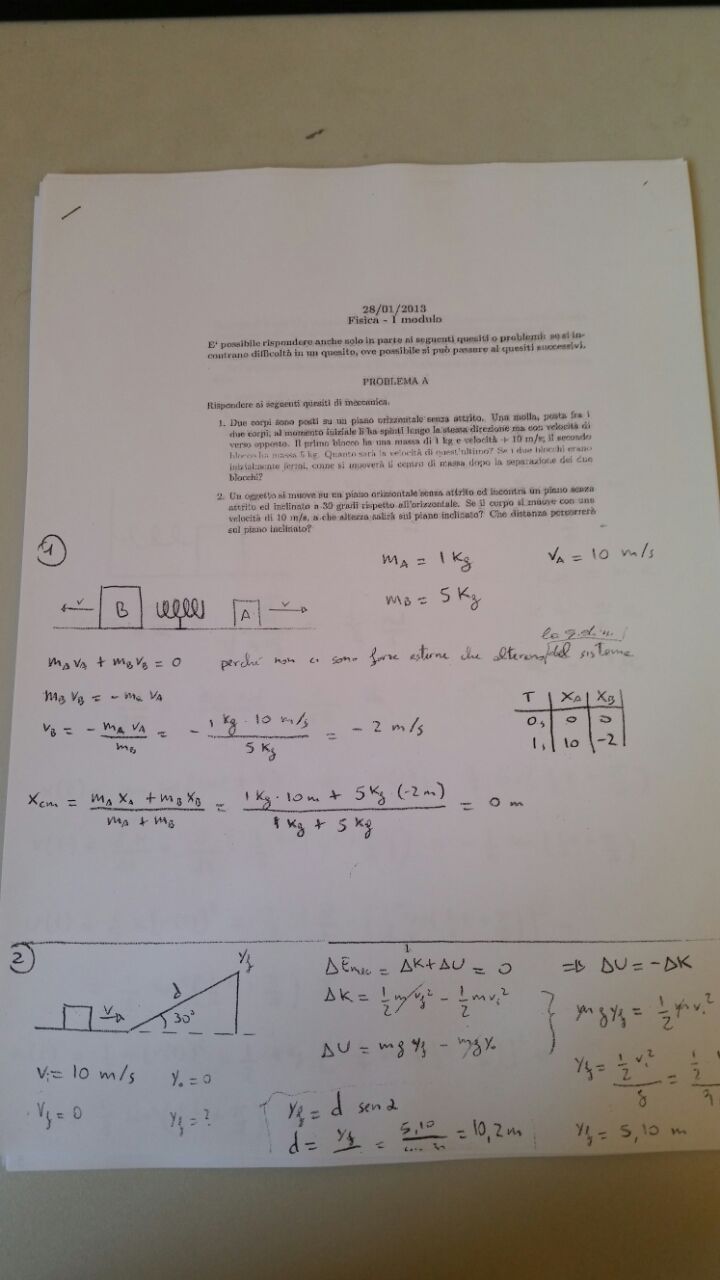 28/01/2013
Fisica - I modulo
E' possibile rispondere anche solo in parte ai seguenti quesiti o problemi: se si in-
contrano difficoltà in un quesito, ove possibile si può passare ai quesiti successivi.
PROBLEMA A
Rispondere ai seguenti quesiti di meccanica.
1. Due corpi sono posti su un piano orizzontale senza attrito. Una molla, posta fra i
due corpi, al momento iniziale li ha spinti lungo la stessa direzione ma con velocità di
verso opposto. Il primo blocco ha una massa di 1 kg e velocità + 10 m/s; il secondo
blocco ha massa 5 kg. Quanto sarà la velocità di quest'ultimo? Se i due blocchi erano
inizialmente fermi, come si muoverà il centro di massa dopo la separazione dei due
blocchi?
2. Un oggetto si muove su un piano orizzontale senza attrito ed incontra un piano senza
attrito ed inclinato a 30 gradi rispetto all'orizzontale. Se il corpo si muove con una
velocità di 10 m/s, a che altezza salirà sul piano inclinato? Che distanza percorrerà
sul piano inclinato?
1
m_A = 1 Kg   V_A = 10 m/s
m_B = 5 Kg
v B A v
m_A v_A + m_B v_B = 0 perché non ci sono forze esterne che del sistema
m_B v_B = - m_A v_A
v_B = - m_A v_A / m_B = - 1 kg · 10 m/s / 5 kg = - 2 m/s
T | X_A | X_B
0s | 0 | 0
1s | 10 | -2
X_cm = m_A X_A + m_B X_B / m_A + m_B = 1 Kg · 10 m + 5 Kg (-2 m) / 1 Kg + 5 Kg = 0 m
2
v d 30° y_f
ΔE_mec = ΔK + ΔU = 0 ⇒ ΔU = -ΔK
ΔK = 1/2 m v_f² - 1/2 m v_i²
m g y_f = 1/2 m v_i²
ΔU = m g y_f - m g y_0
y_f = 1/2 v_i² / g = 1/2
v_i = 10 m/s   y_0 = 0
v_f = 0   y_f = ?
y_f = d sen α
d = y_f = 5,10 = 10,2 m
y_f = 5,10 m